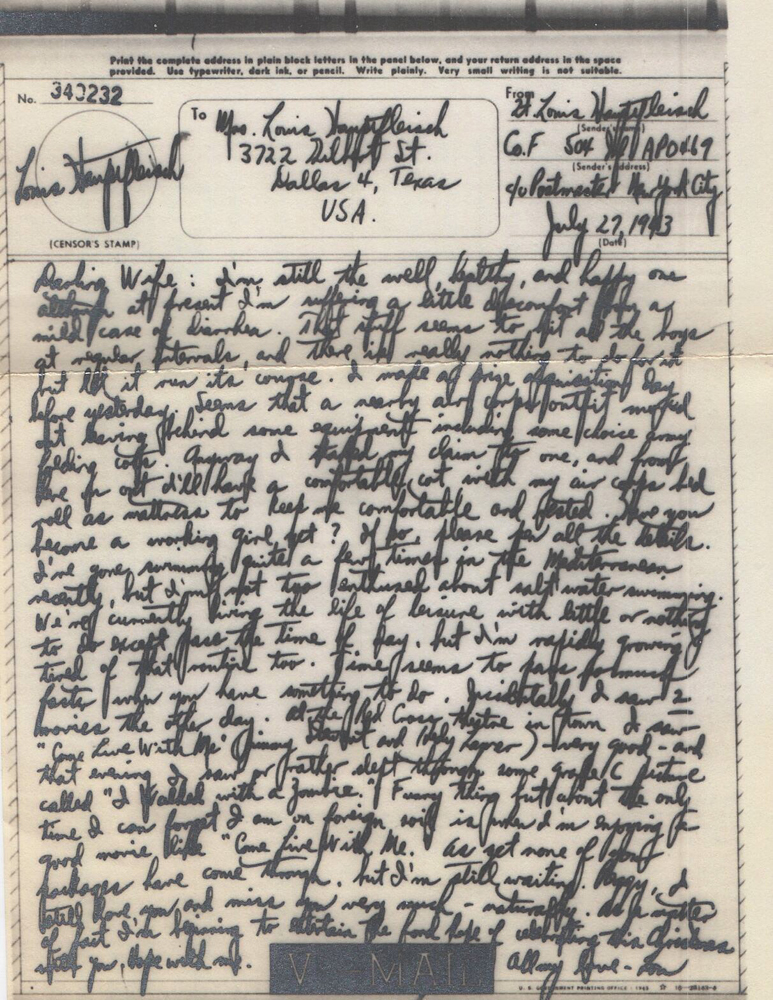 Print the complete address in plain block letters in the panel below, and your return address in the space
provided. Use typewriter, dark ink, or pencil. Write plainly. Very small writing is not suitable.
No. 340232
To Mrs. Louis Hauptfleisch
3722 St.
Dallas 4, Texas
USA.
From
Lt. Louis Hauptfleisch
(Sender's name)
Co.F 504 APO 469
(Sender's address)
c/o Postmaster New York City
July 27, 1943
(Date)
Louis Hauptfleisch
(CENSOR'S STAMP)
Darling Wife: I'm still the well, healthy, and happy one
although at present I'm suffering a little discomfort from a
mild case of diarrhea. That stuff seems to hit all the boys
at regular intervals, and there is really nothing to do for it
but let it run its course. I made a prize acquisition day
before yesterday. Seems that a nearby air corps outfit moved
out leaving behind some equipment including some choice army
folding cots. Anyway I staked my claim to one, and from
here on out I'll have a comfortable cot with my air corps bed
roll as mattress to keep me comfortable and rested. Have you
become a working girl yet? If so, please all the details.
I've gone swimming quite a few times in the Mediterranean
recently, but I'm not too enthused about salt water swimming.
We're currently living the life of leisure with little or nothing
to do except pass the time of day. but I'm rapidly growing
tired of that routine too. Time seems to pass so much
faster when you have something to do. Incidentally I saw 2
movies the other day. At the Red Cross theatre in town I saw
"Come Live With Me" (Jimmy Stewart and Hedy Lamarr) - very good - and
that evening I saw or rather slept through some grade C picture
called "I Walked with a Zombie." Funny thing but about the only
time I can forget I am on foreign soil is when I'm enjoying a
good movie like "Come Live With Me." As yet none of your
packages have come through. but I'm still waiting. Peggy, I
still love you and miss you very much - naturally. As a matter
of fact I'm beginning to entertain the fond hope of celebrating this Christmas
with you. Hope with me. All my love - Lou
V - MAIL
U. S. GOVERNMENT PRINTING OFFICE : 1943